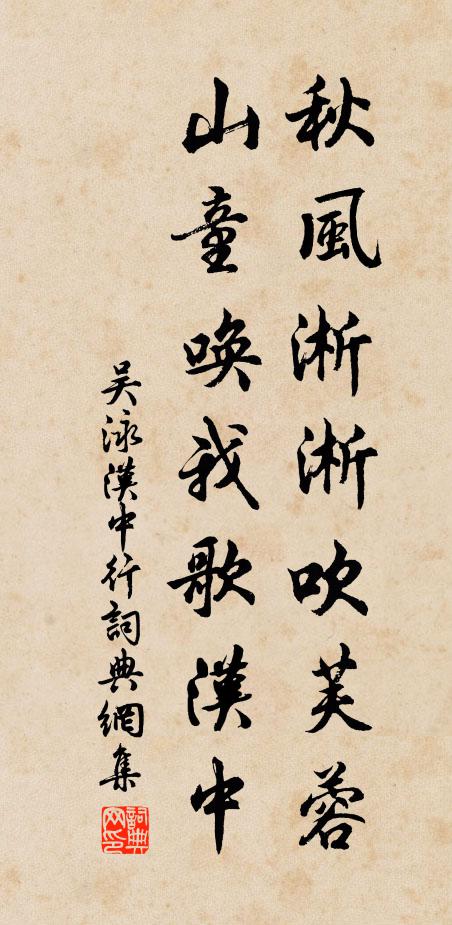 秋風淅淅吹芙蓉
山童喚我歌漢中
吴泳漢中行詞典網集
詞典网印